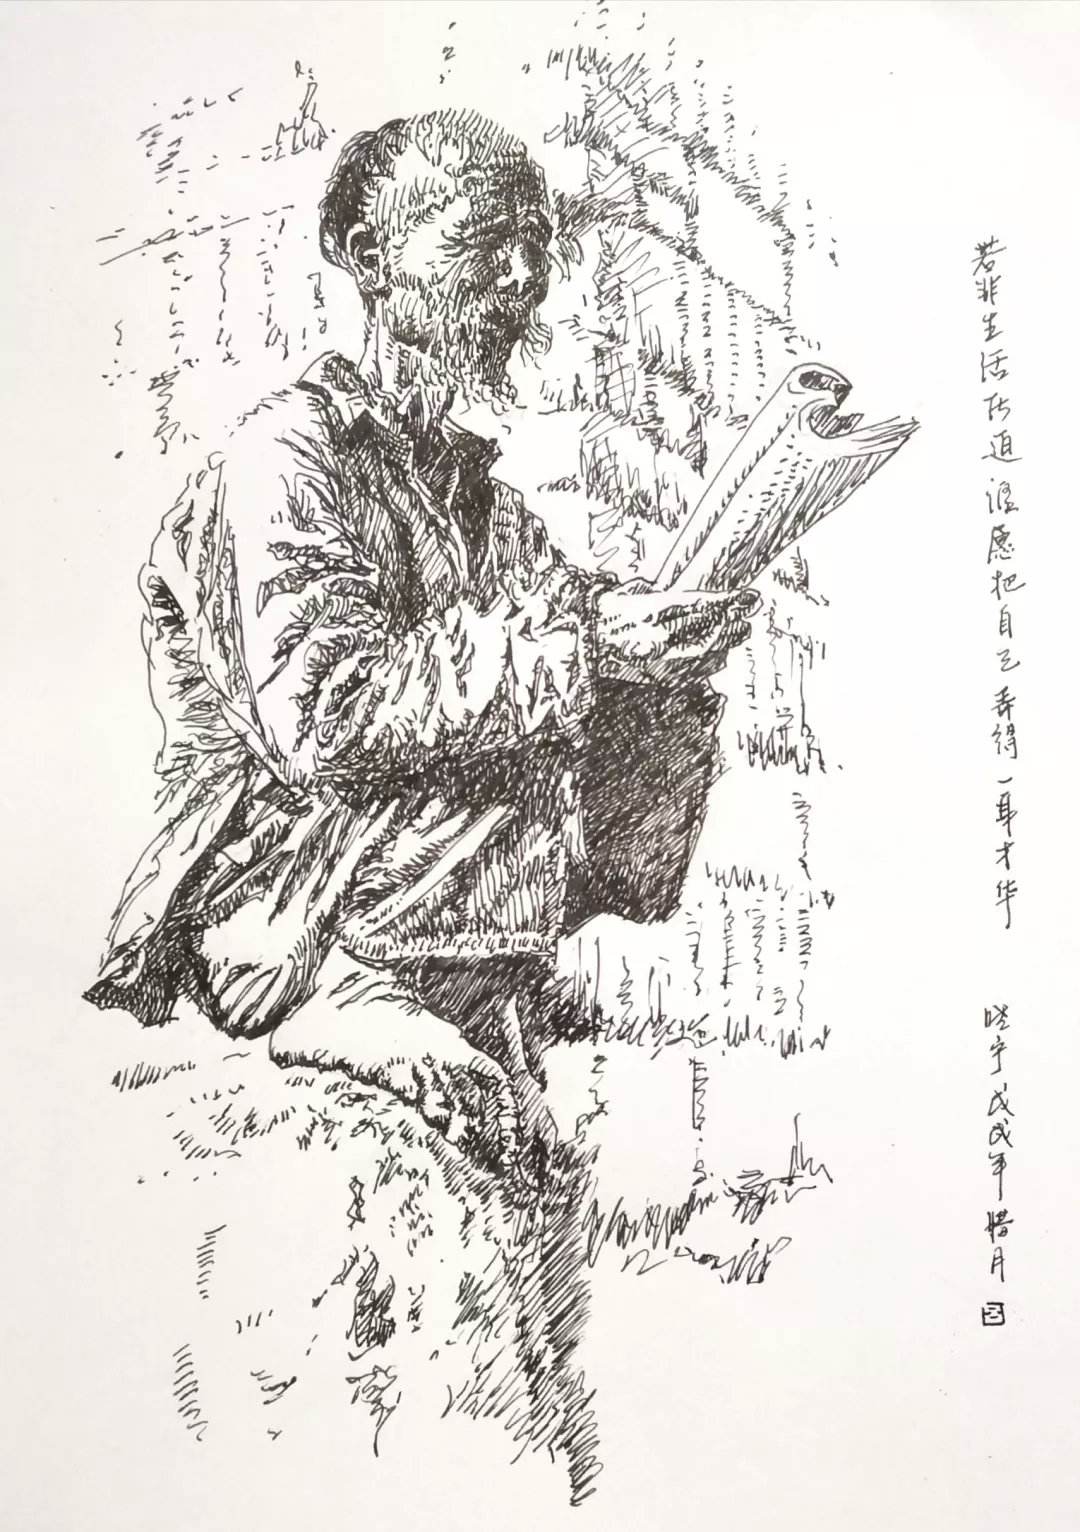 若非生活所迫 谁愿把自己弄得一身才华
晓宇 戊戌年腊月